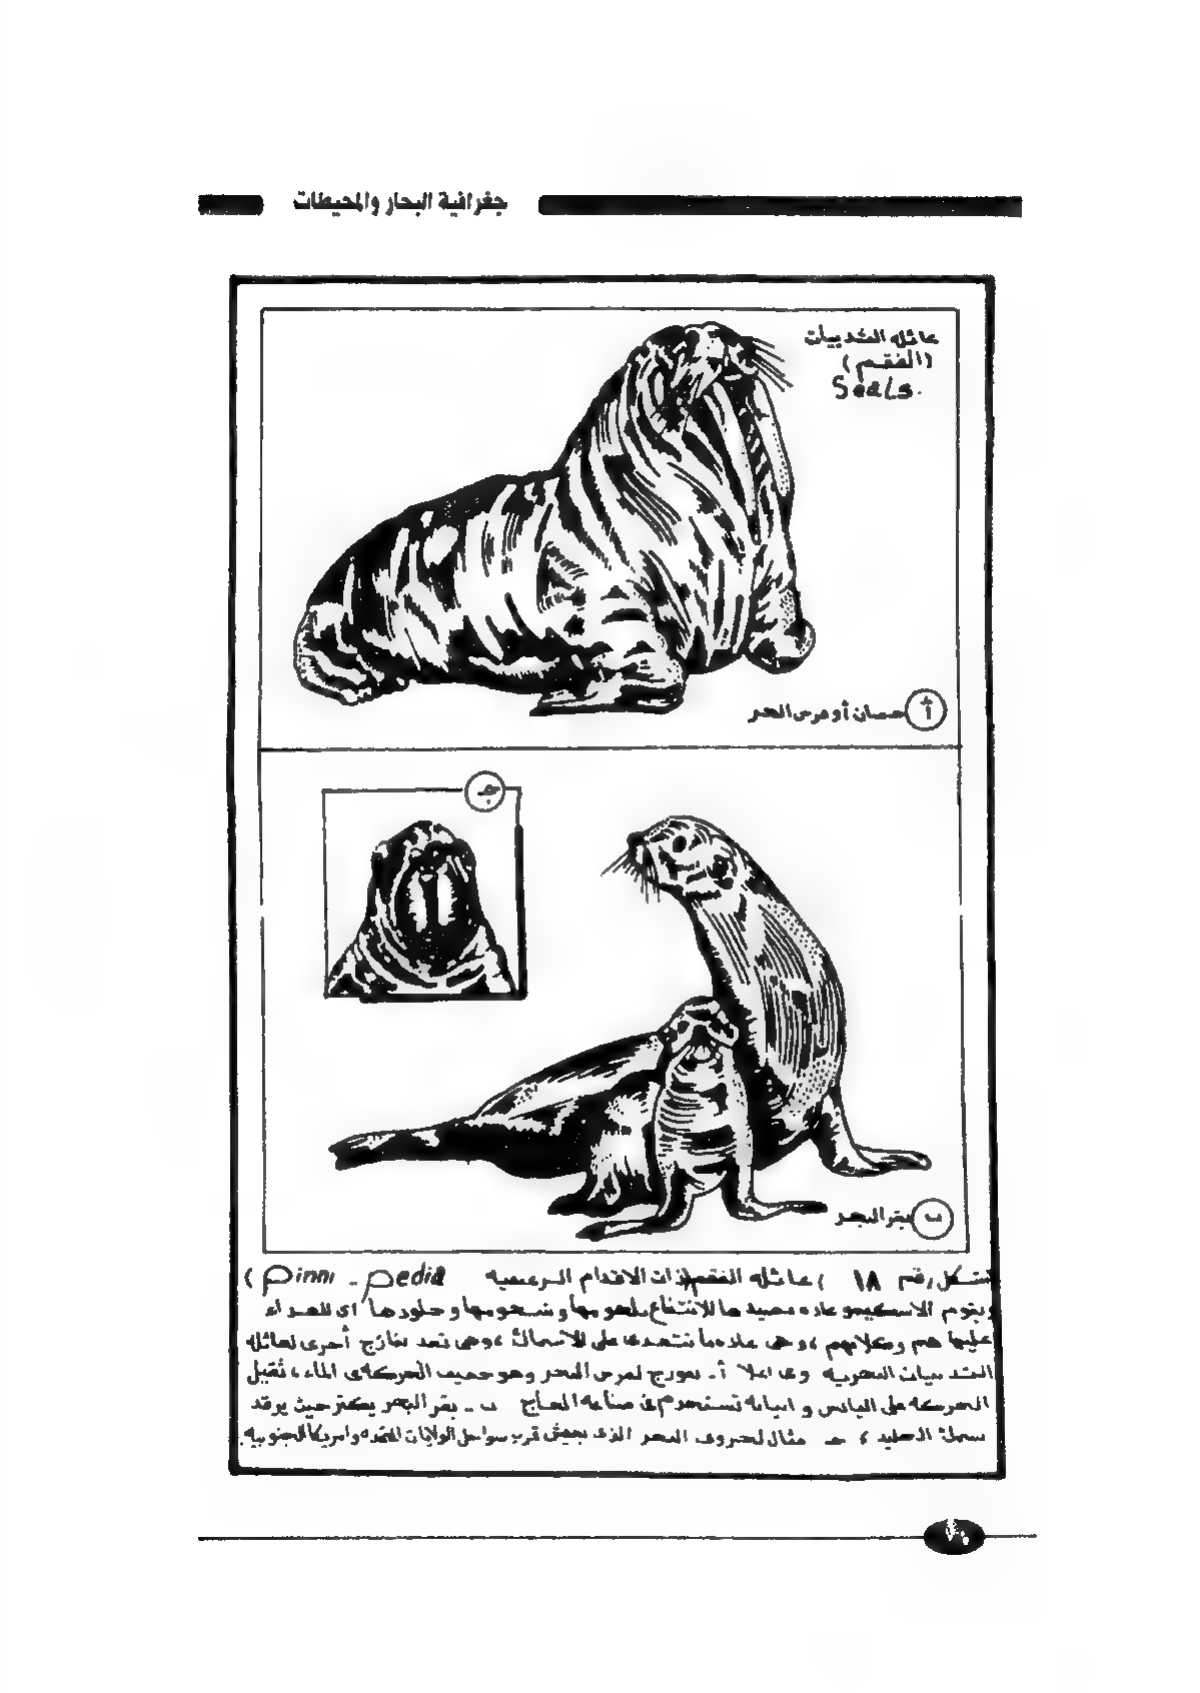 جغرافية البحار والمحيطات
عائله الثدييات
(الفقم)
Seals.
أ
حصان أو فرس البحر
جـ
ب
بقر البحر
شكل رقم ١٨ ) عائله الفقم (ذات الاقدام الريشيه Pinni - pedia )
ويقوم الاسكيمو عاده بصيدها للانتفاع بلحومها وشحومها وجلودها اى للغذاء
عليها هم وكلابهم ، وهى عادة ما تتغذى على الاسماك ، وهى تعد نماذج أخرى لعائله
الثدييات البحريه وفى اعلا أ- نموذج لفرس البحر وهو خفيف الحركه فى الماء ، ثقيل
الحركه على اليابس و انيابه تستخدم فى صناعه العاج ب - بقر البحر يكثر حيث يرقد
سمك الجليد ، جـ مثال لخروف البحر الذى يعيش قرب سواحل الولايات المتحده وامريكا الجنوبيه.
٧٠